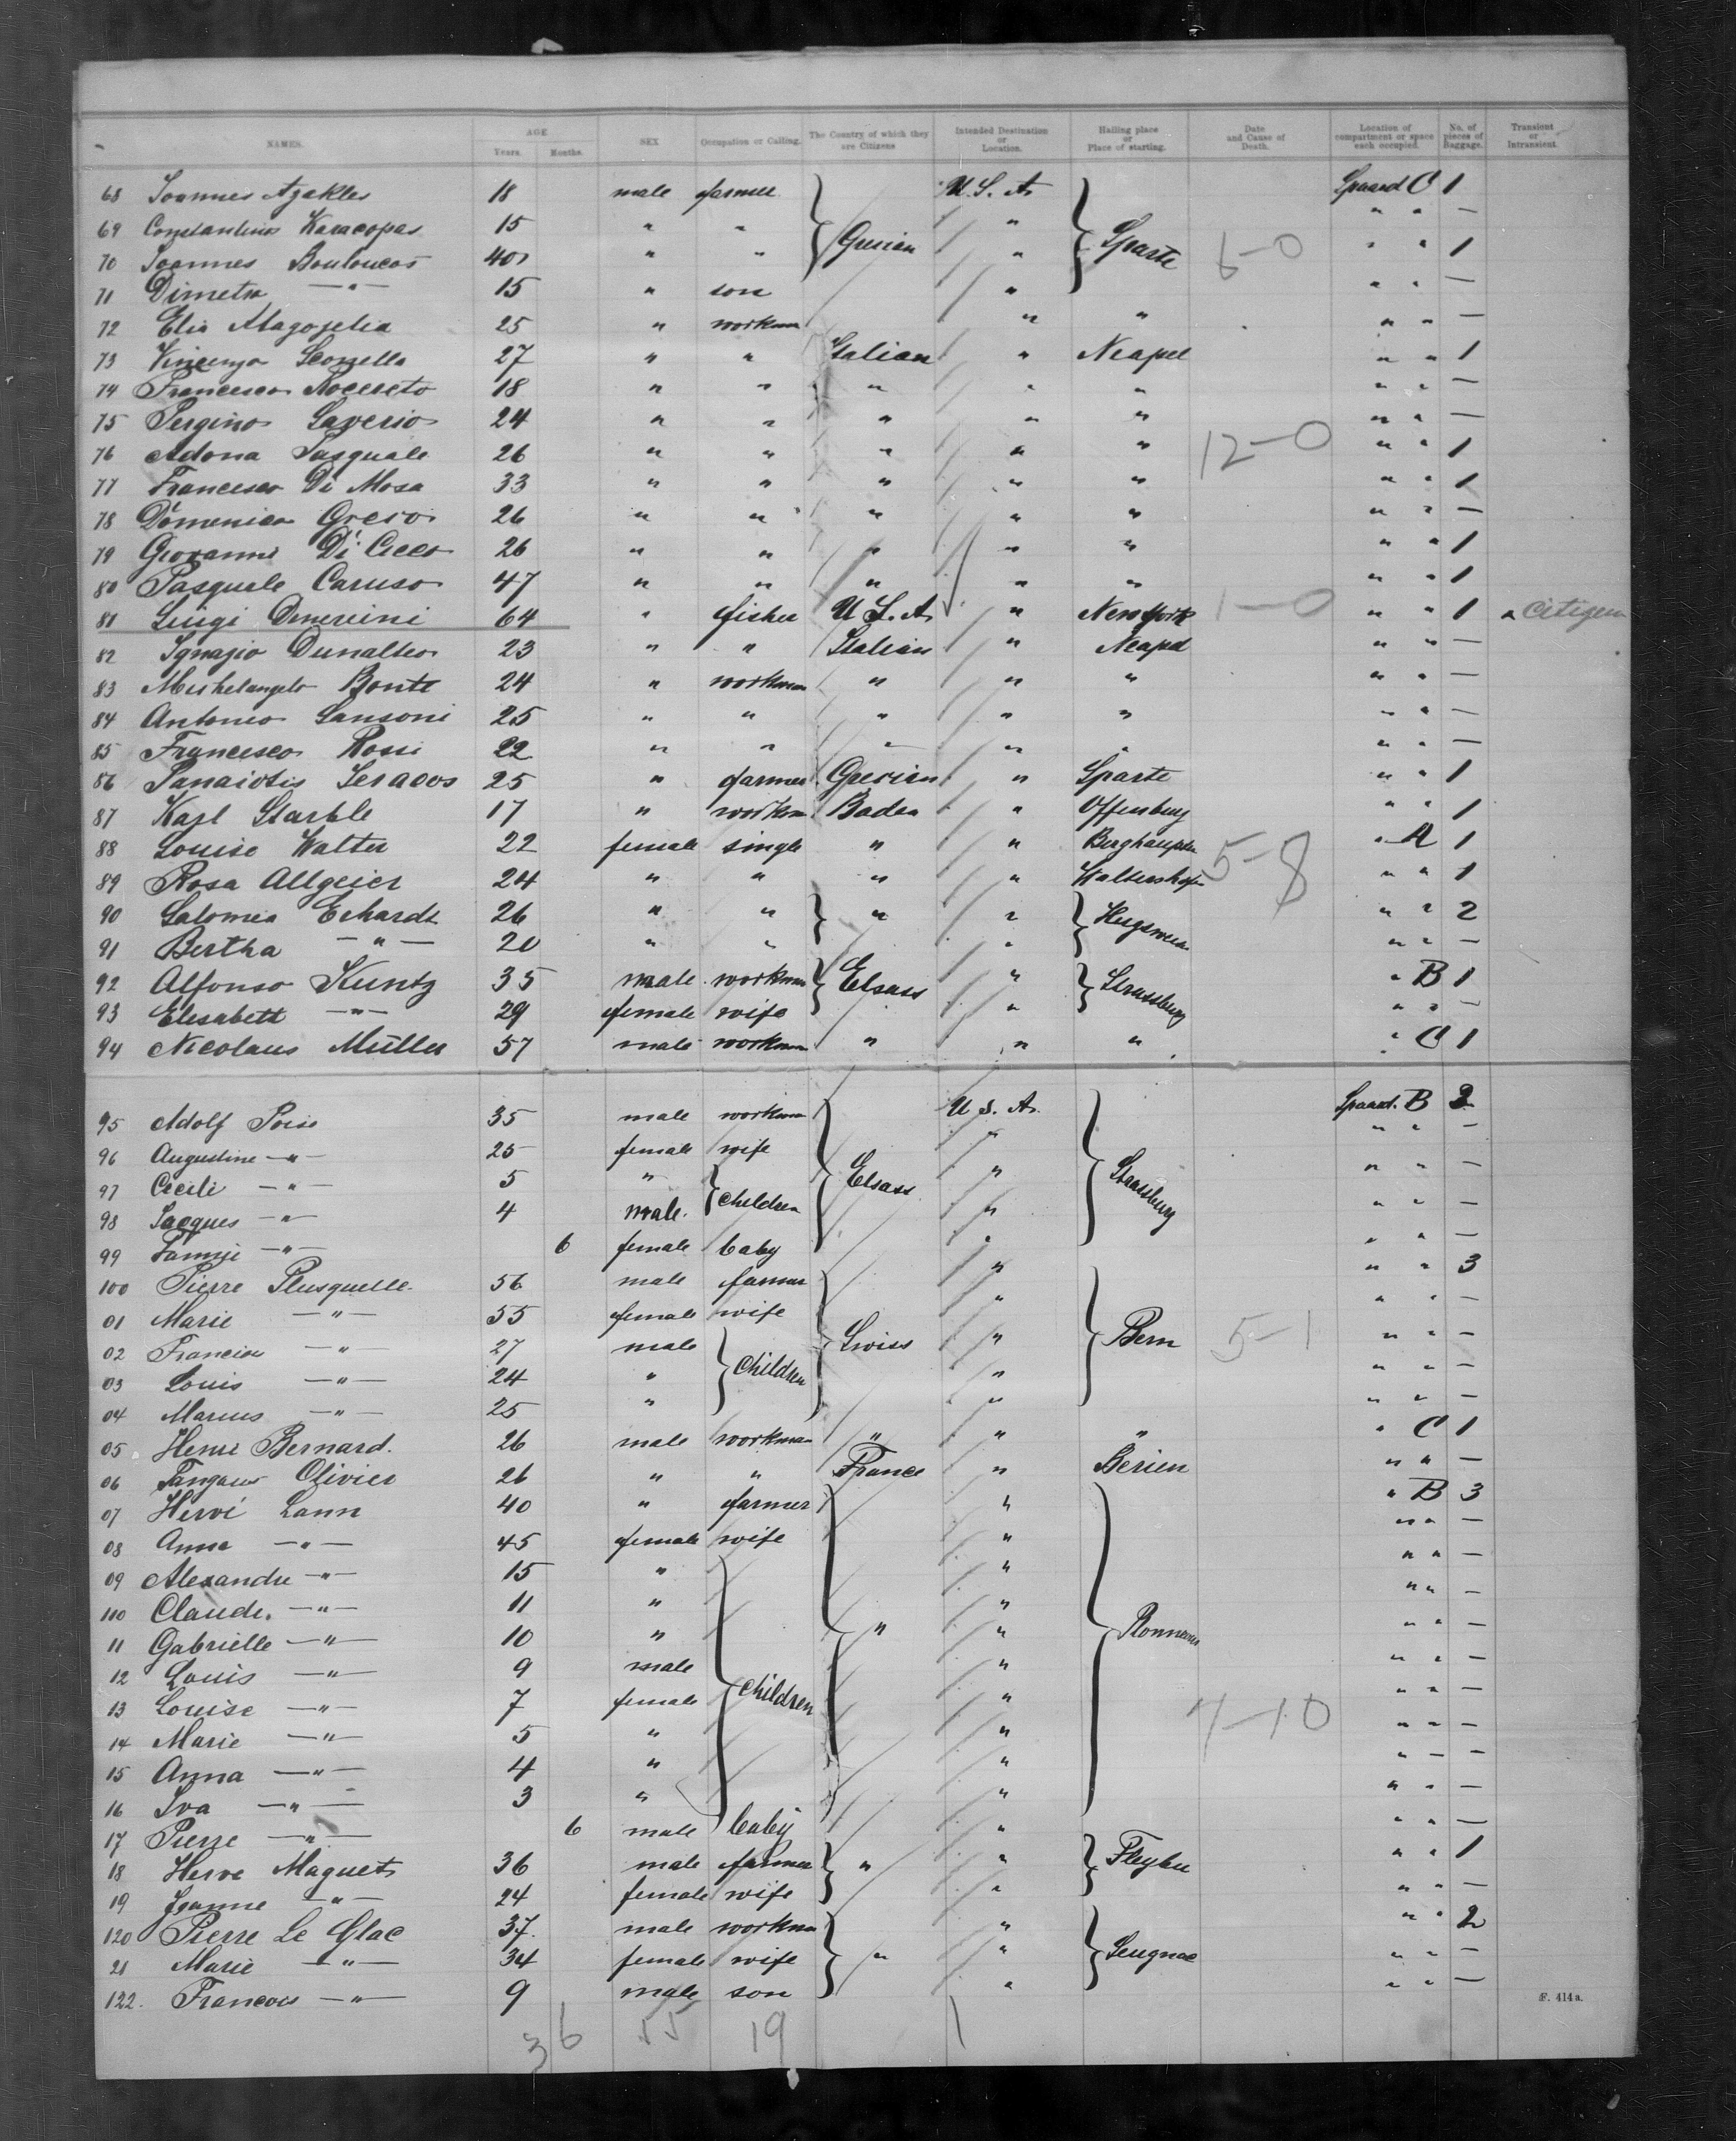 NAMES. AGE Years. Months. SEX Occupation or Calling. The Country of which they are Citizens Intended Destination or Location. Hailing place or Place of starting. Date and Cause of Death. Location of compartment or space each occupied. No. of pieces of Baggage. Transient or Intransient.
68 Ioannes 18 male farmer U. S. A. C 1
69 Constantinos Karacopas 15 " " " " " —
70 Ioannes Bouloucos 40 " " Gresian " Sparte 6–0 " " 1
71 Dimetri —"— 15 " son " " " —
72 Elia 25 " workman " " " " —
73 Vincenzo 27 " " Italian " Neapel " " 1
74 Francesco Nocereto 18 " " " " " " " —
75 Pergino Saverio 24 " " " " " " " —
76 Adona Pasquale 26 " " " " " 12–0 " " 1
77 Francesco Di Mosa 33 " " " " " " " 1
78 Domenico Greso 26 " " " " " " " —
79 Giovanni Di Cicco 26 " " " " " " " 1
80 Pasquale Caruso 47 " " " " " " " 1
81 Luigi 64 " fisher U. S. A. " New York 1–0 " " 1 " citizen
82 Ignazio 23 " " Italian " Neapel " " —
83 Michelangelo Bonte 24 " workman " " " " " —
84 Antonio Sansoni 25 " " " " " " " —
85 Francesco Rossi 22 " " " " " " " —
86 Panaiotis 25 " farmer Gresian " Sparte " " 1
87 Karl 17 " workm Baden " Offenburg " " 1
88 Louise Walter 22 female single " " Berghaupten 5–8 " A 1
89 Rosa Allgeier 24 " " " " Waltershofen " " 1
90 Salomea Erhardt 26 " " " " Hugsweier " " 2
91 Bertha —"— 20 " " " " " —
92 Alfonso Kuntz 35 male workman Elsass " Strassburg " B 1
93 Elisabeth —"— 29 female wife " " " —
94 Nicolaus Müller 57 male workman " " " " C 1
95 Adolf 35 male workman U. S. A. B 2
96 Augustine —"— 25 female wife " " " —
97 Cecile —"— 5 " children Elsass " Strassburg " " —
98 Jacques —"— 4 male " " " —
99 Fannie —"— 6 female baby " " " —
100 Pierre Plusquelle 56 male farmer " " " 3
01 Marie —"— 55 female wife " " " —
02 Francis —"— 27 male Children Swiss " Bern 5–1 " " —
03 Louis —"— 24 " " " " —
04 Marius —"— 25 " " " " —
05 Henri Bernard. 26 male workman " " " " C 1
06 Olivier 26 " " France " Berien " " —
07 Hervé Lann 40 " farmer " " B 3
08 Anna —"— 45 female wife " " " —
09 Alexandre —"— 15 " " " " —
110 Claude. —"— 11 " " " " —
11 Gabrielle —"— 10 " " " " " —
12 Louis —"— 9 male children " " " —
13 Louise —"— 7 female " " " —
14 Marie —"— 5 " " 7–10 " " —
15 Anna —"— 4 " " " " —
16 Iva —"— 3 " " " " —
17 Pierre —"— 6 male baby " " " —
18 Herve Maguet 36 male farmer " " " " 1
19 Jeanne —"— 24 female wife " " " —
120 Pierre Le Glac 37. male workman " " " 2
21 Marie —"— 34 female wife " " " " —
122. Francois —"— 9 male son " " " —
F. 414a.
36 55 19 1